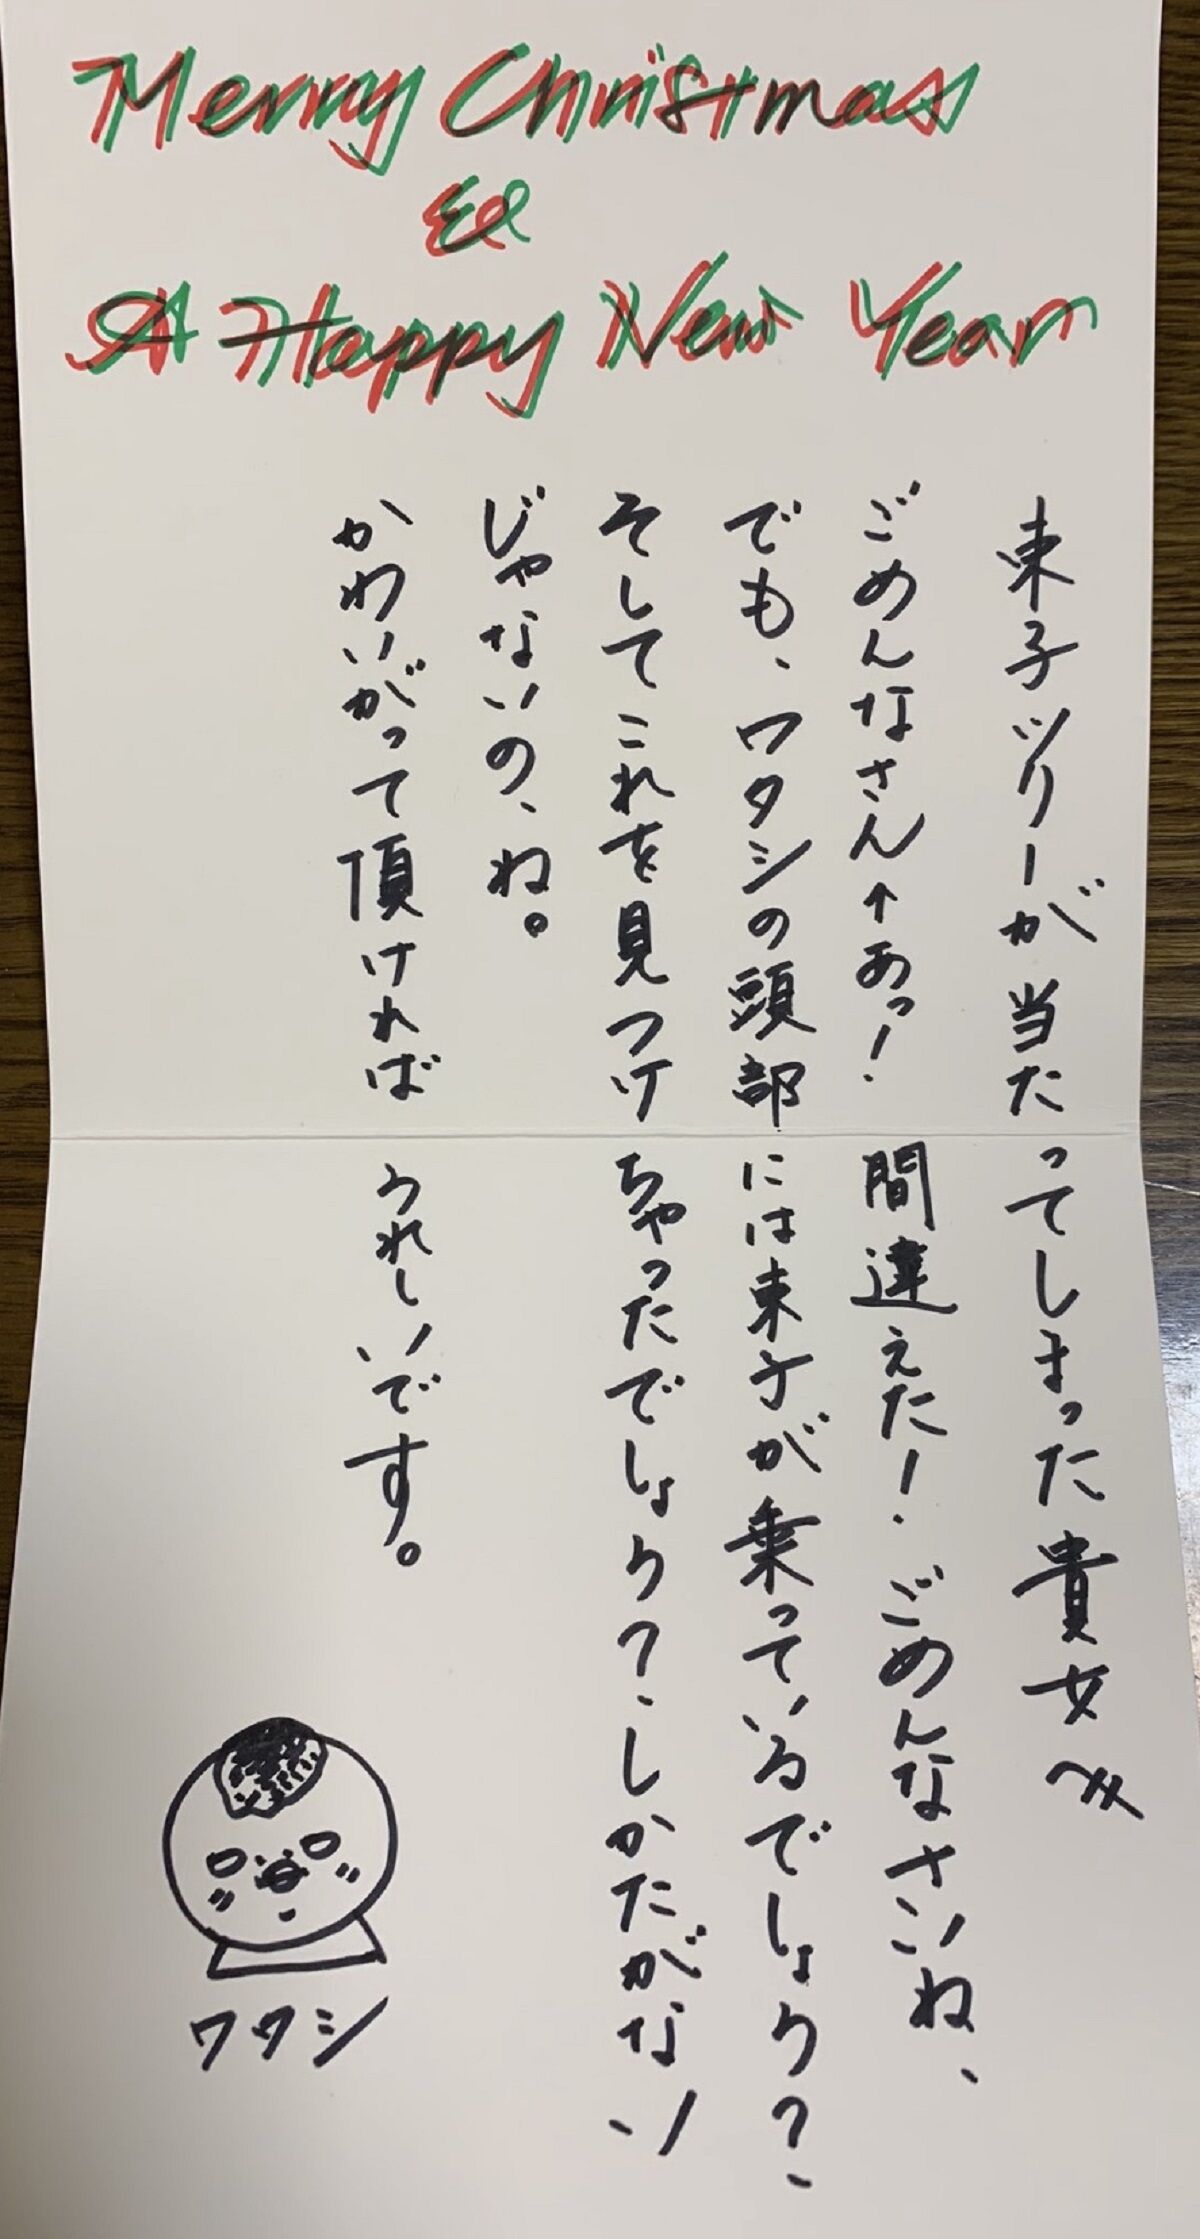 Merry Christmas
&
A Happy New Year
東子ツリーが当たってしまった貴女へ
ごめんなさん↑あっ！間違えた！ごめんなさいね、
でも、ワタシの頭部には東子が乗っているでしょう？、
そしてこれを見つけちゃったでしょう？、しかたがない
じゃないの、ね。
かわいがって頂ければうれしいです。
ワタシ